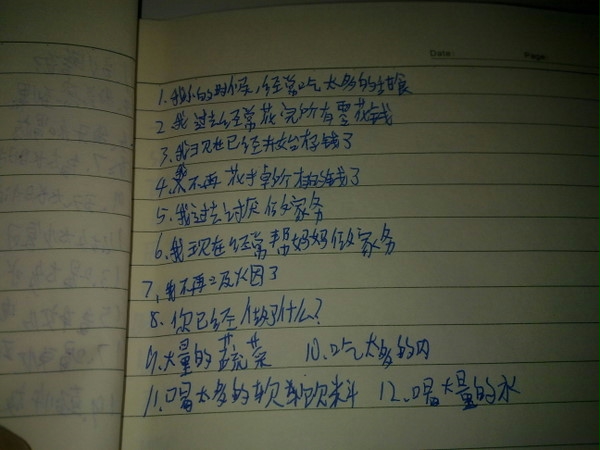 Date: Page:
1.我小的时候,经常吃太多的甜食
2 我过去经常花完所有零花钱
3.我现在已经开始存钱了
4.我不再花 钱了
5.我过去讨厌做家务
6.我现在经常帮妈妈做家务
7,我不再吸烟了
8.你已经做了什么?
9.大量的蔬菜 10.吃太多的肉
11.喝太多的软饮料 12.喝大量的水